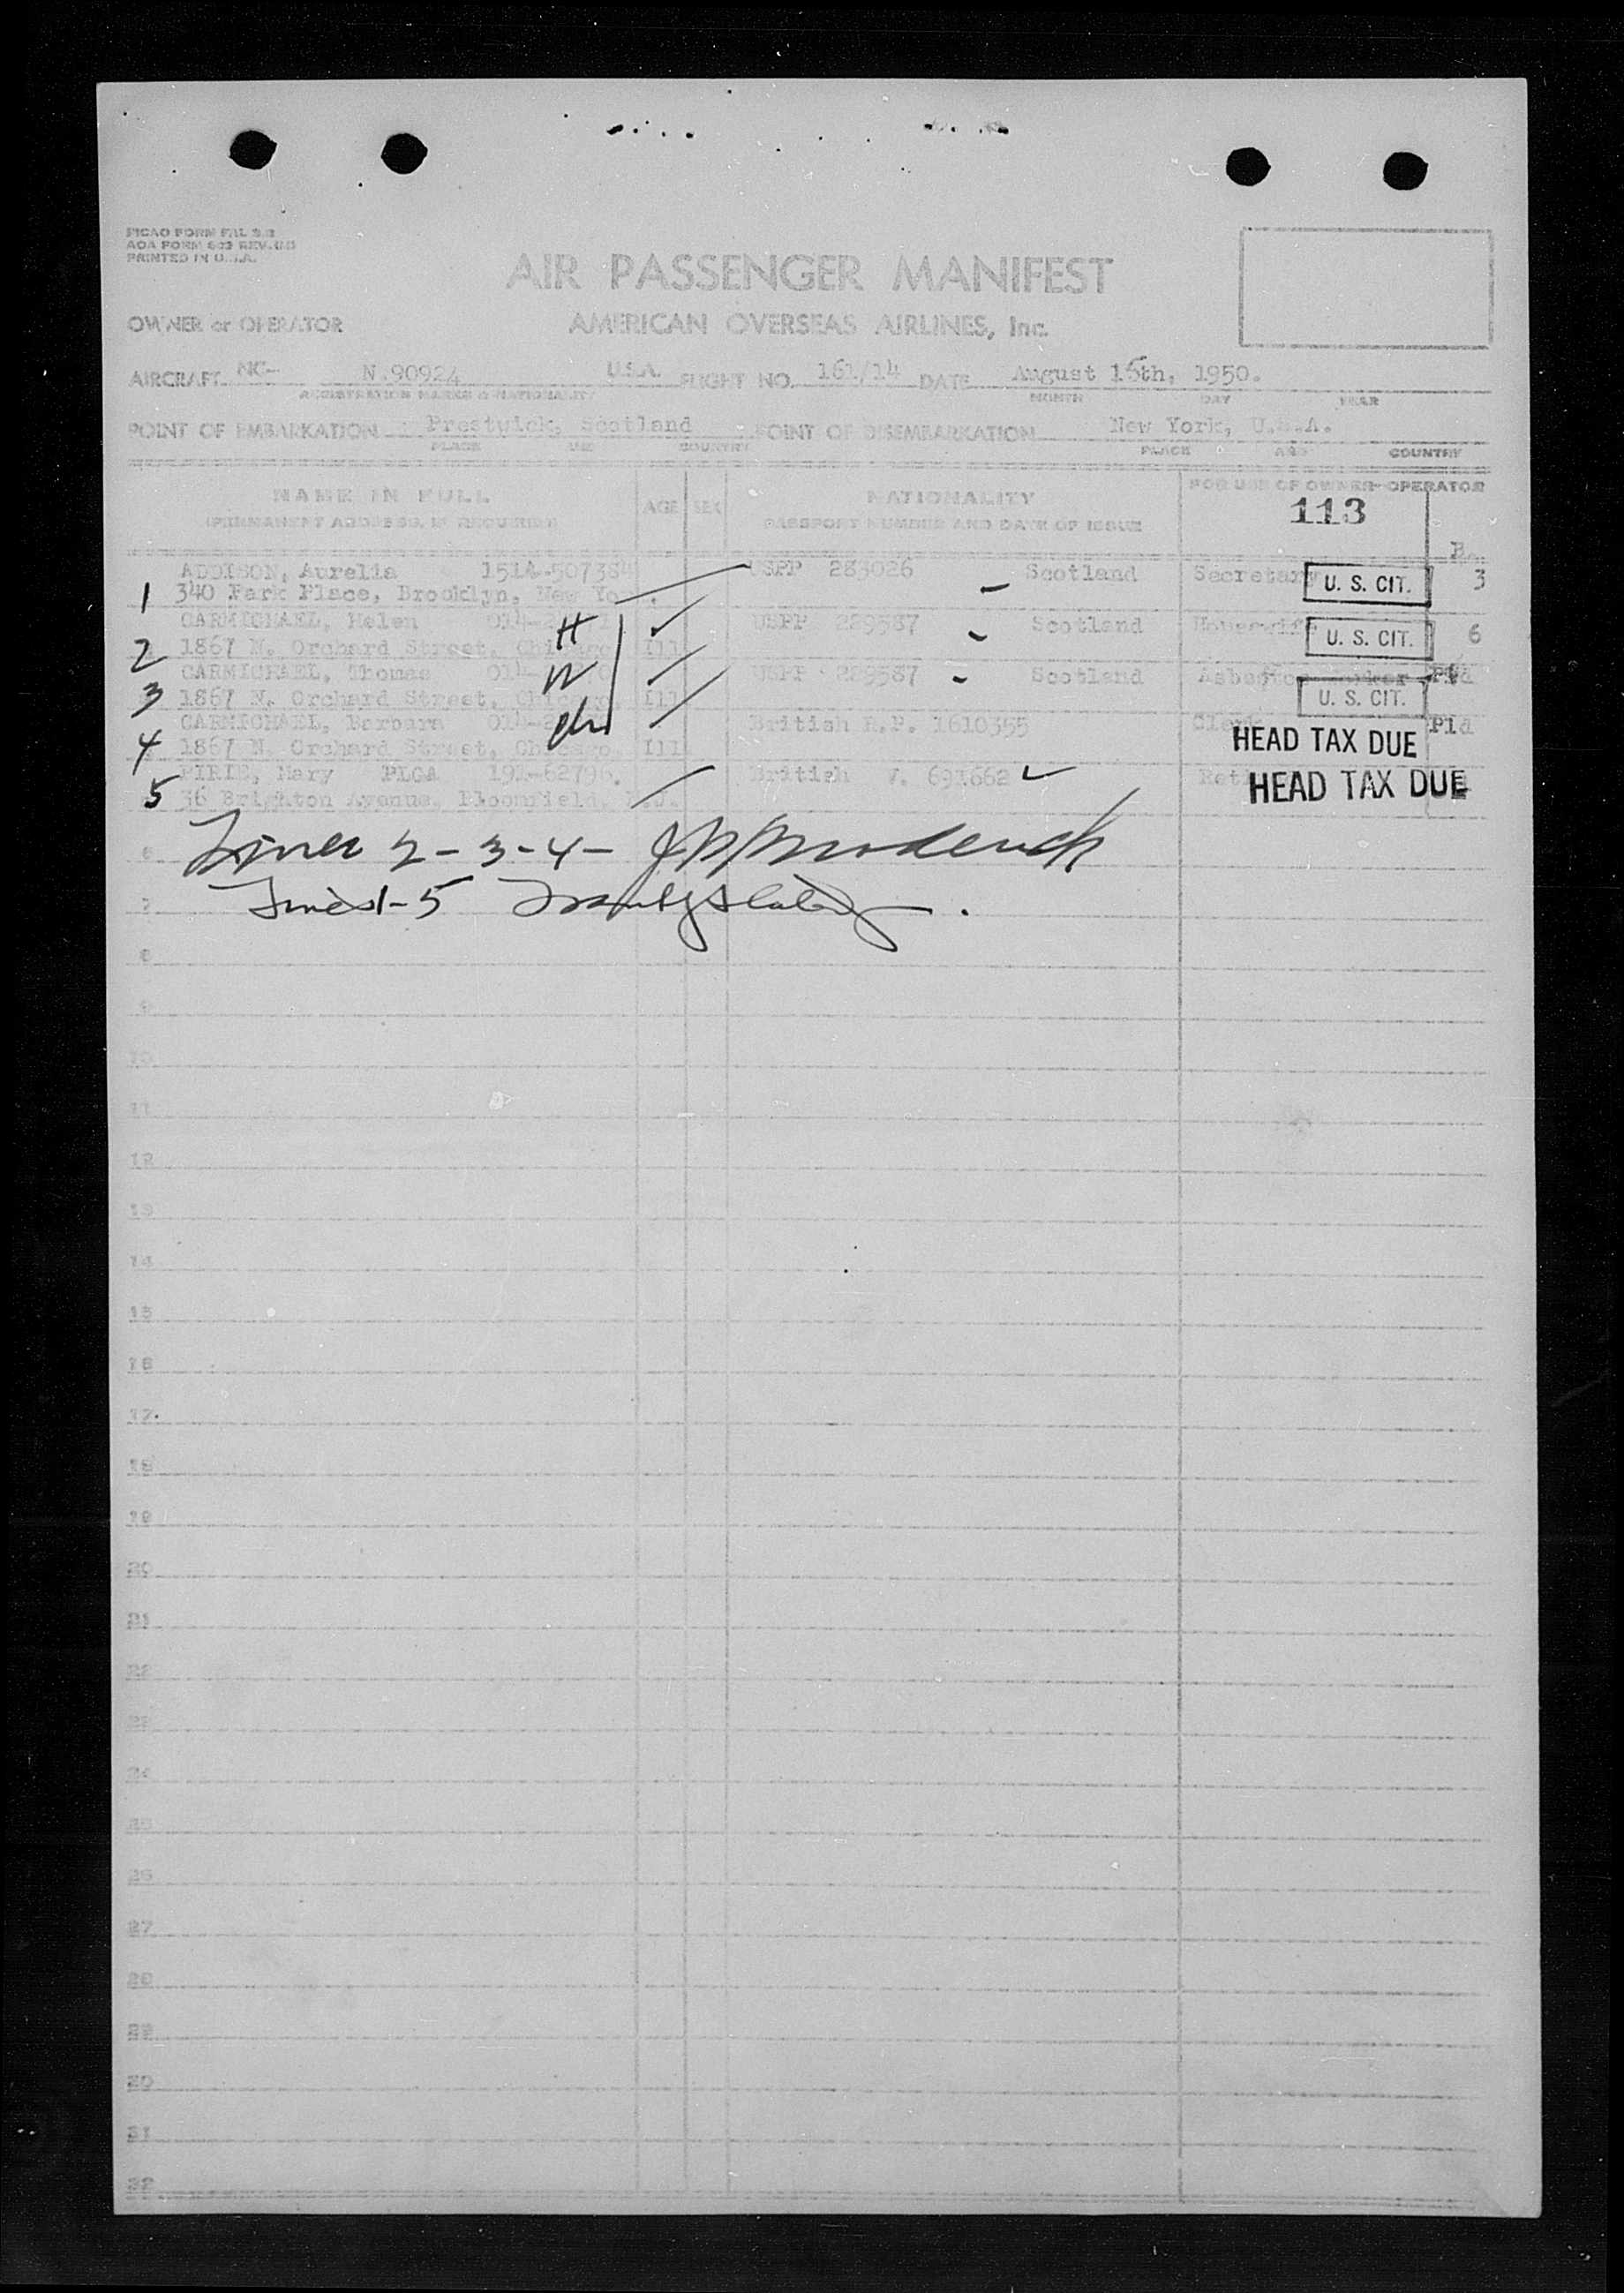 PICAO FORM FAL
AOA FORM 603 REV.
PRINTED IN U.S.A.
AIR PASSENGER MANIFEST
OWNER or OPERATOR AMERICAN OVERSEAS AIRLINES, Inc.
AIRCRAFT NC- N.90924 U.S.A. FLIGHT NO. 161/14 DATE August 16th, 1950.
REGISTRATION MARKS & NATIONALITY MONTH DAY YEAR
POINT OF EMBARKATION Prestwick, Scotland POINT OF DISEMBARKATION New York, U.S.A.
PLACE AND COUNTRY PLACE AND COUNTRY
NAME IN FULL AGE SEX NATIONALITY FOR USE OF OWNER-OPERATOR
(PERMANENT ADDRESS, IF REQUIRED) PASSPORT NUMBER AND DATE OF ISSUE 113
B.
ADDISON, Aurelia USPP 283026 Scotland Secretary U. S. CIT. 3
1 340 Park Place, Brooklyn, New
CARMICHAEL, Helen H USPP 229587 Scotland Housewife U. S. CIT. 6
2 1867 N. Orchard Street, Chicago Ill
CARMICHAEL, Thomas W USPP 229587 Scotland
3 1867 N. Orchard Street, Chicago, Ill U. S. CIT.
CARMICHAEL, Barbara British R.P. 1610355 Pld
4 1867 N. Orchard Street, Chicago, Ill HEAD TAX DUE
PIRIE, Mary PLGA 191-62796. British V. 691662
5 36 Brighton Avenue, Bloomfield, N.J. HEAD TAX DUE
6 Lines 2-3-4-
7 Lines 1-5
8
9
10
11
12
13
14
15
16
17
18
19
20
21
22
23
24
25
26
27
28
29
30
31
32